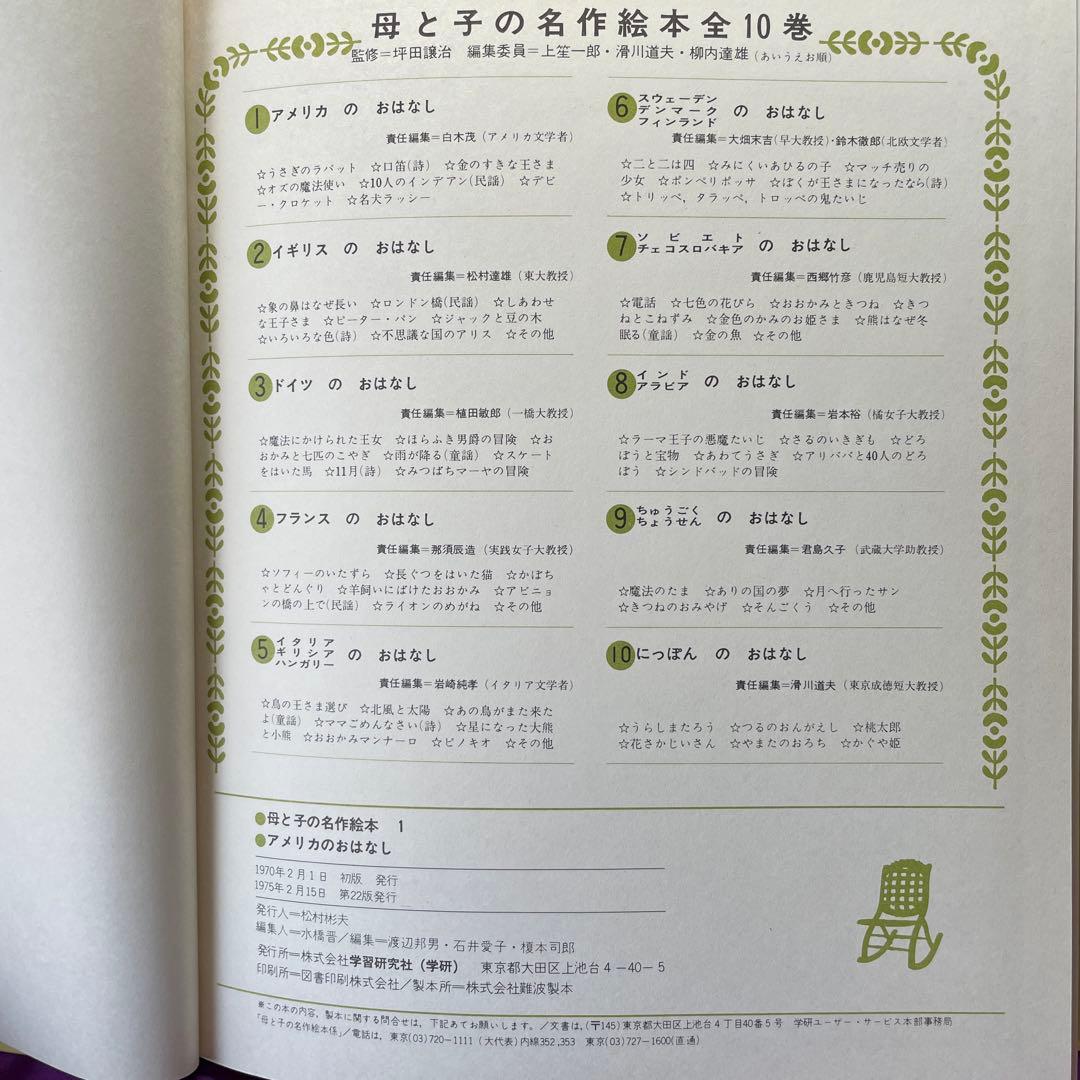 母と子の名作絵本全10巻
監修＝坪田譲治　編集委員＝上笙一郎・滑川道夫・柳内達雄（あいうえお順）
1 アメリカ の おはなし
責任編集＝白木茂（アメリカ文学者）
☆うさぎのラバット　☆口笛(詩)　☆金のすきな王さま
☆オズの魔法使い　☆10人のインデアン(民謡)　☆デビ
ー・クロケット　☆名犬ラッシー
2 イギリス の おはなし
責任編集＝松村達雄（東大教授）
☆象の鼻はなぜ長い　☆ロンドン橋(民謡)　☆しあわせ
な王子さま　☆ピーター・パン　☆ジャックと豆の木
☆いろいろな色(詩)　☆不思議な国のアリス　☆その他
3 ドイツ の おはなし
責任編集＝植田敏郎（一橋大教授）
☆魔法にかけられた王女　☆ほらふき男爵の冒険　☆お
おかみと七匹のこやぎ　☆雨が降る(童謡)　☆スケート
をはいた馬　☆11月(詩)　☆みつばちマーヤの冒険
4 フランス の おはなし
責任編集＝那須辰造（実践女子大教授）
☆ソフィーのいたずら　☆長ぐつをはいた猫　☆かぼち
ゃとどんぐり　☆羊飼いにばけたおおかみ　☆アビニョ
ンの橋の上で(民謡)　☆ライオンのめがね　☆その他
5 イタリア
ギリシア
ハンガリー の おはなし
責任編集＝岩崎純孝（イタリア文学者）
☆鳥の王さま選び　☆北風と太陽　☆あの鳥がまた来た
よ(童謡)　☆ママごめんなさい(詩)　☆星になった大熊
と小熊　☆おおかみマンナーロ　☆ピノキオ　☆その他
6 スウェーデン
デンマーク
フィンランド の おはなし
責任編集＝大畑末吉(早大教授)・鈴木徹郎(北欧文学者)
☆二と二は四　☆みにくいあひるの子　☆マッチ売りの
少女　☆ポンペリポッサ　☆ぼくが王さまになったなら(詩)
☆トリッペ，タラッペ，トロッペの鬼たいじ
7 ソビエト
チェコスロバキア の おはなし
責任編集＝西郷竹彦（鹿児島短大教授）
☆電話　☆七色の花びら　☆おおかみときつね　☆きつ
ねとこねずみ　☆金色のかみのお姫さま　☆熊はなぜ冬
眠る(童謡)　☆金の魚　☆その他
8 インド
アラビア の おはなし
責任編集＝岩本裕（橘女子大教授）
☆ラーマ王子の悪魔たいじ　☆さるのいきぎも　☆どろ
ぼうと宝物　☆あわてうさぎ　☆アリババと40人のどろ
ぼう　☆シンドバッドの冒険
9 ちゅうごく
ちょうせん の おはなし
責任編集＝君島久子（武蔵大学助教授）
☆魔法のたま　☆ありの国の夢　☆月へ行ったサン
☆きつねのおみやげ　☆そんごくう　☆その他
10 にっぽん の おはなし
責任編集＝滑川道夫（東京成徳短大教授）
☆うらしまたろう　☆つるのおんがえし　☆桃太郎
☆花さかじいさん　☆やまたのおろち　☆かぐや姫
●母と子の名作絵本　1
●アメリカのおはなし
1970年2月1日　初版　発行
1975年2月15日　第22版発行
発行人＝松村彬夫
編集人＝水橋晋／編集＝渡辺邦男・石井愛子・榎本司郎
発行所＝株式会社学習研究社（学研）　東京都大田区上池台4-40-5
印刷所＝図書印刷株式会社／製本所＝株式会社難波製本
※この本の内容，製本に関する問合せは，下記あてお願いします。／文書は，(〒145)東京都大田区上池台4丁目40番5号　学研ユーザー・サービス本部事務局
「母と子の名作絵本係」／電話は，東京(03)720-1111（大代表）内線352,353　東京(03)727-1600(直通)